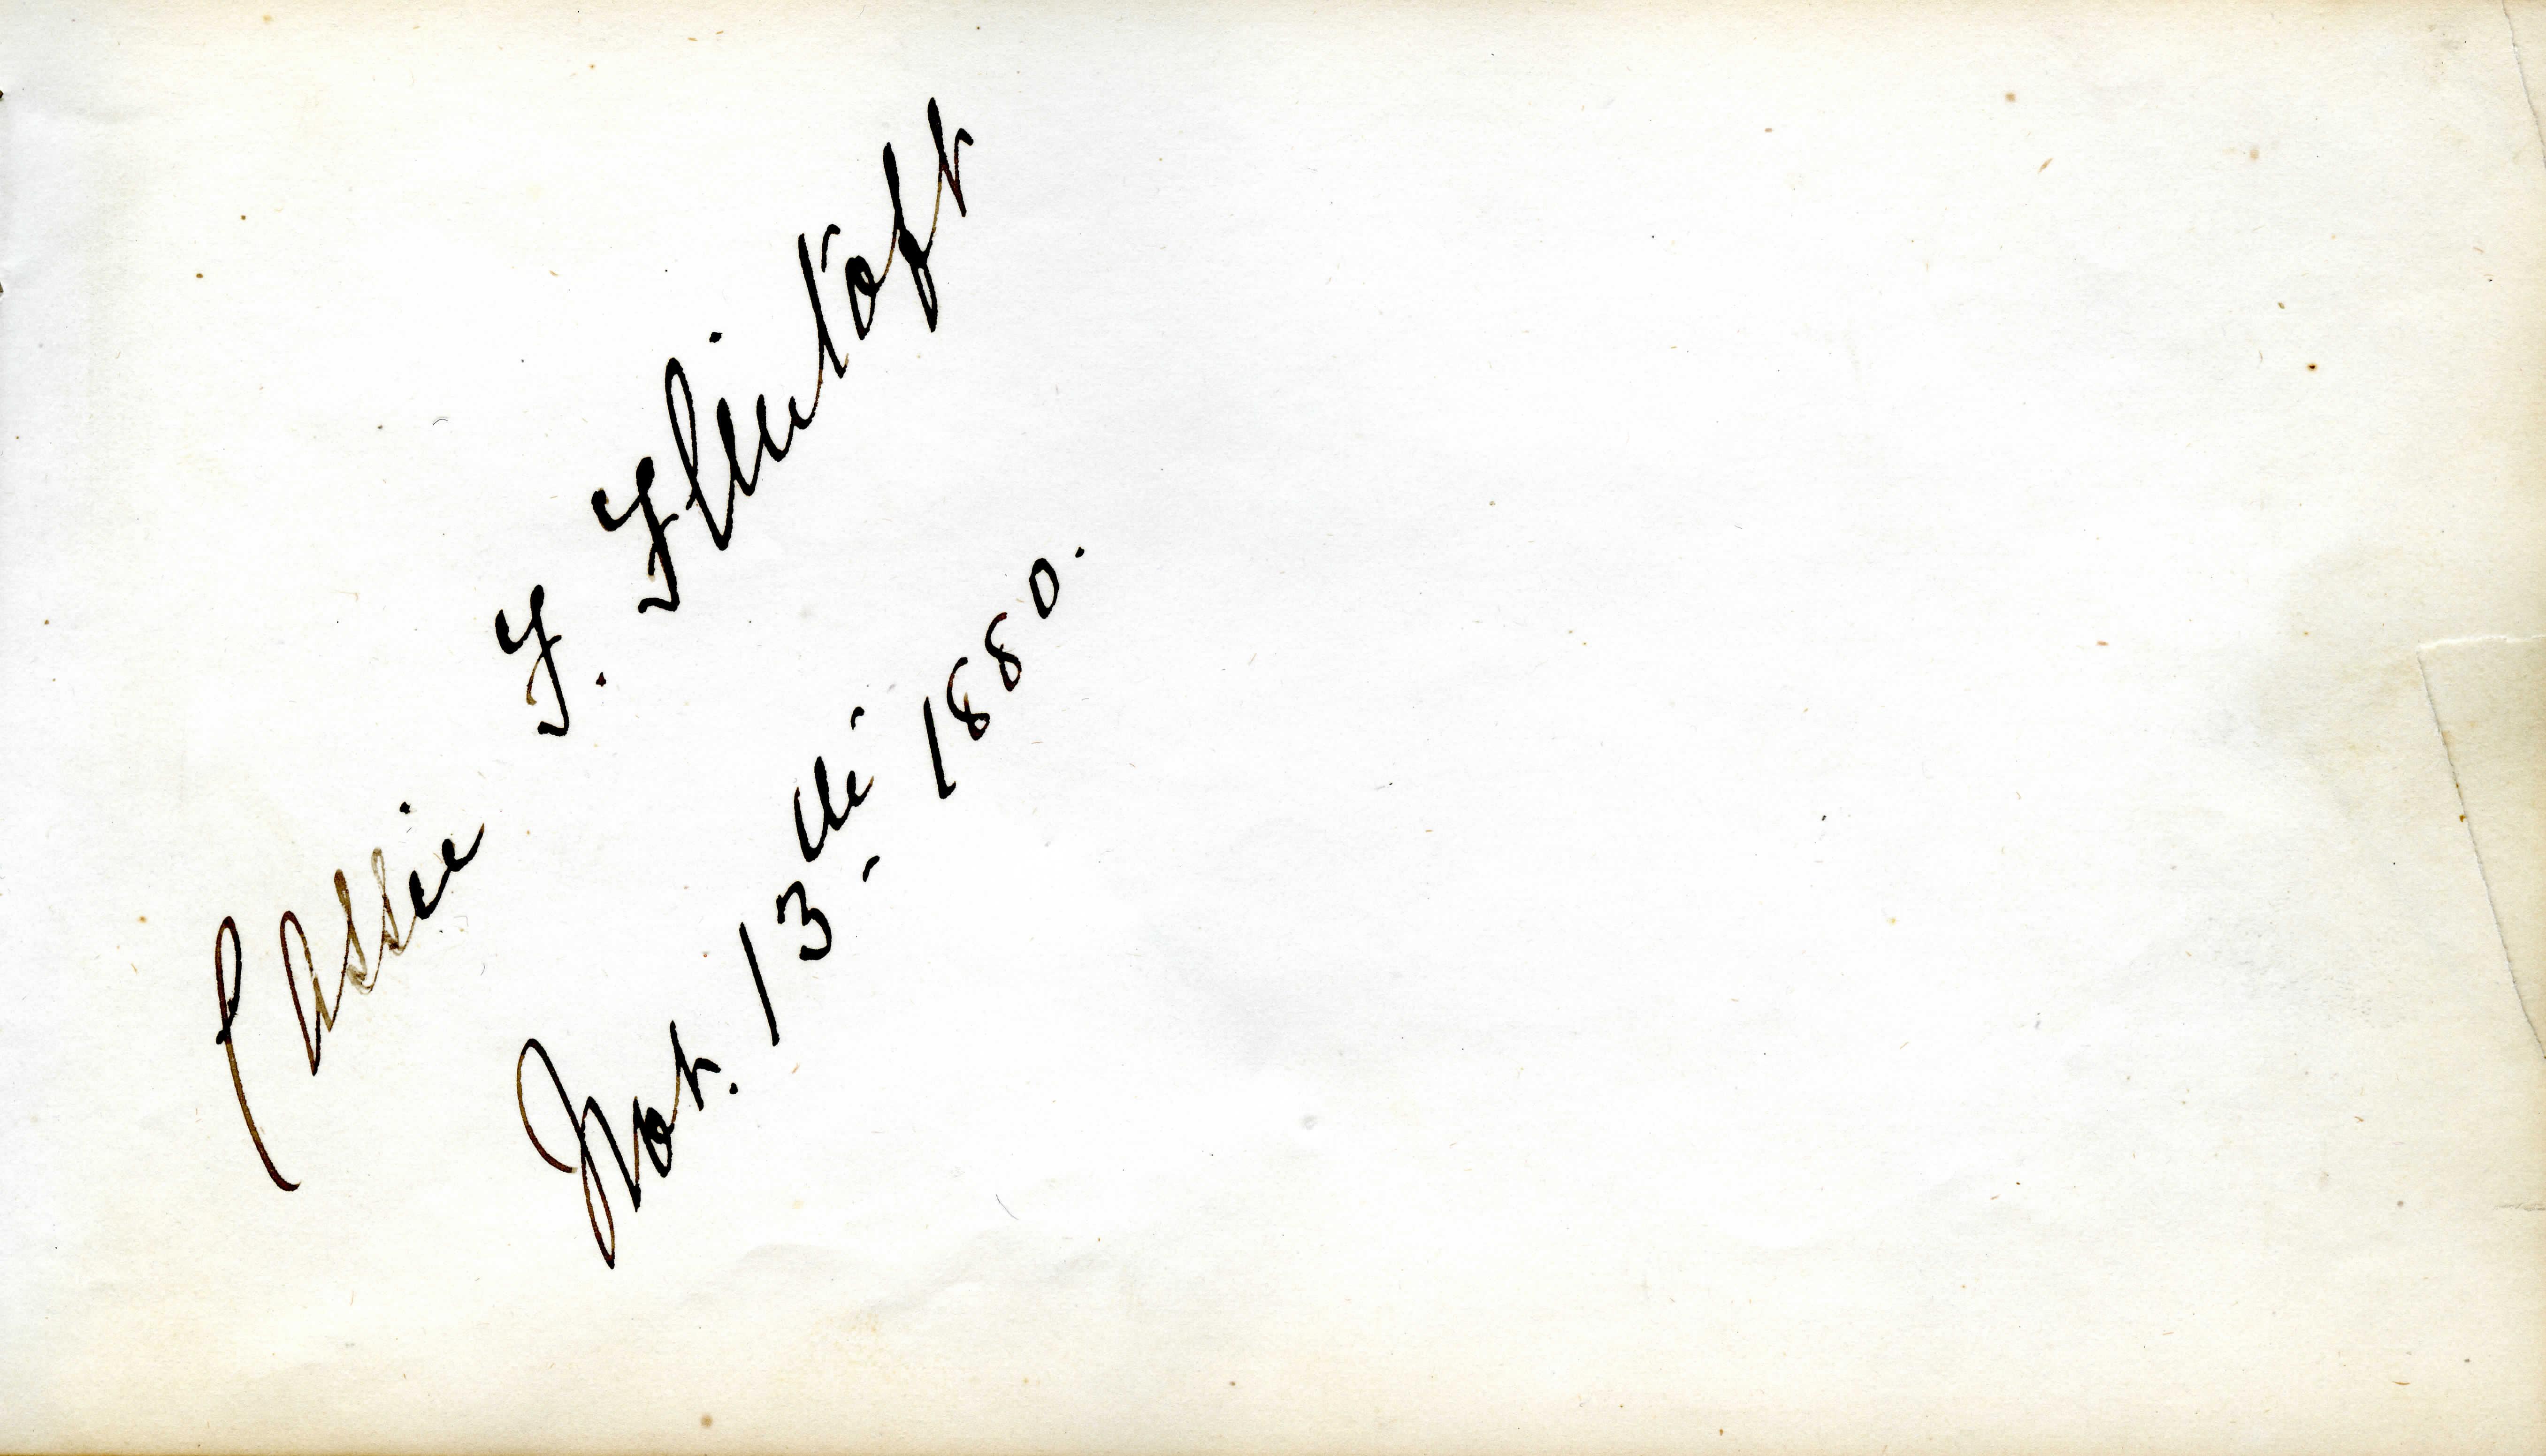 Cassie F. Flintoft
Nov. 13th 1880.